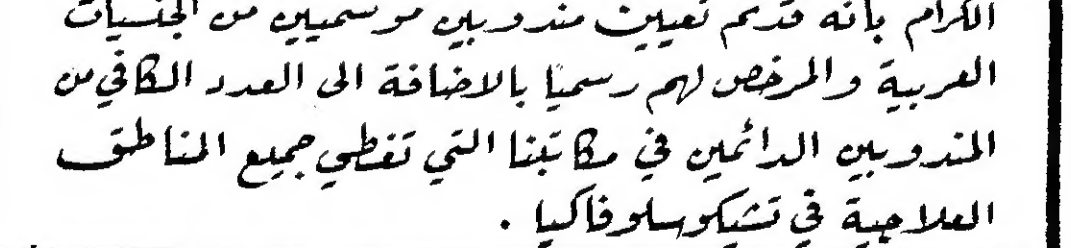 الكرام بأنه قد تم تعيين مندوبين موسميين من الجنسيات
العربية والمرخص لهم رسميًا بالاضافة الى العدد الكافي من
المندوبين الدائمين في مكاتبنا التي تغطي جميع المناطق
العلاجية في تشيكوسلوفاكيا .